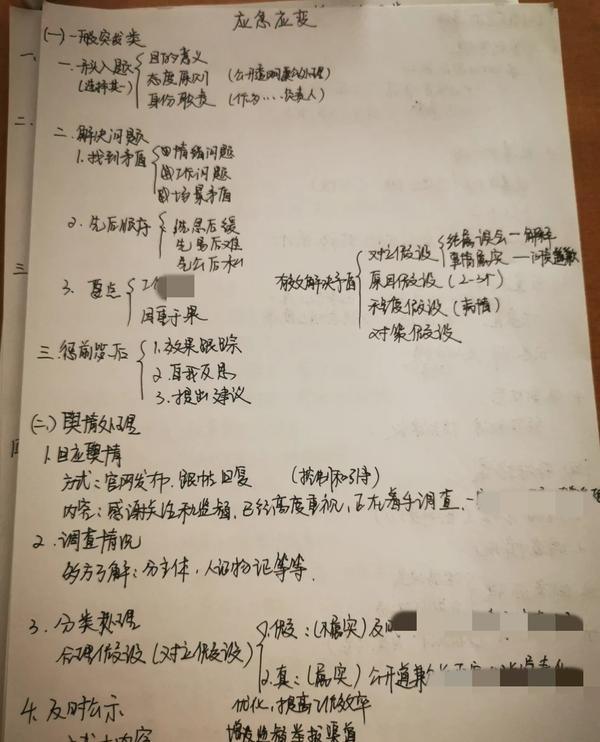 应急应变
(一) 一般突发类
一、引入题 目的意义
(选择其一) 态度原则
身份职责 (作为……负责人)
二、解决问题
1.找到矛盾 ①情绪问题
②工作问题
③场景矛盾
2.先后顺序 先急后缓
先易后难
先公后私
3.
因事于果
有效解决矛盾 对立假设 纯属误会—解释
事情属实—
原因假设 (2-3个)
程度假设 (病情)
对策假设
三、惩前毖后 1.效果跟踪
2.自我反思
3.提出建议
(二)舆情处理
1.回应舆情
方式:官网发布,跟帖回复 (控制和引导)
内容:感谢关注和监督,已经高度重视,正在着手调查,
2.调查情况
多方了解:分主体,人证物证等等.
3.分类处理
合理假设 (对立假设)
1.假:(不属实)及时
2.真:(属实)公开道歉
4.及时公示
优化,提高工作效率
增设监督举报渠道